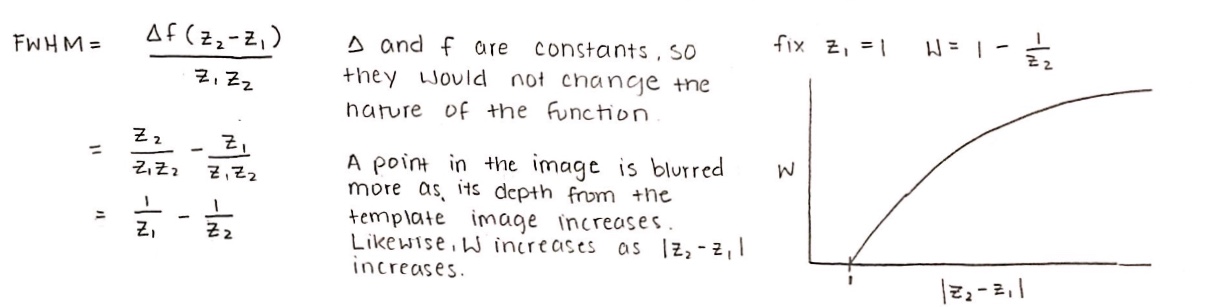 FWHM = Δf(z₂-z₁) / z₁z₂
= z₂/z₁z₂ - z₁/z₁z₂
= 1/z₁ - 1/z₂
Δ and f are constants, so
they would not change the
nature of the function.
A point in the image is blurred
more as, its depth from the
template image increases.
Likewise, W increases as |z₂-z₁|
increases.
fix z₁ = 1 W = 1 - 1/z₂
W
1
|z₂-z₁|